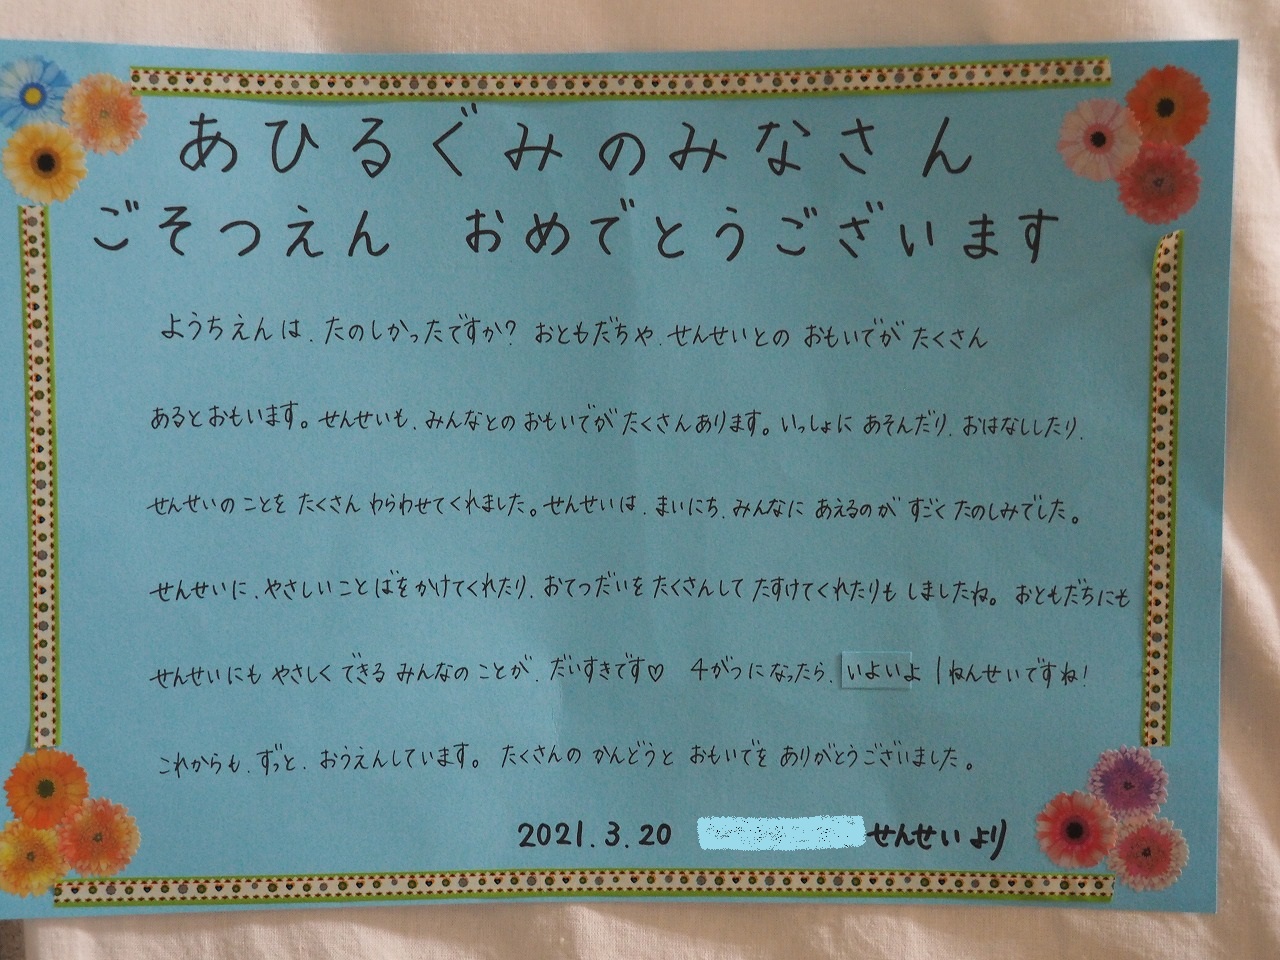 あひるぐみのみなさん
ごそつえん おめでとうございます
ようちえんは、たのしかったですか? おともだちや、せんせいとの おもいでが たくさん
あるとおもいます。せんせいも、みんなとの おもいでが たくさんあります。いっしょに あそんだり、おはなししたり、
せんせいの ことを たくさん わらわせてくれました。せんせいは、まいにち、みんなに あえるのが すごく たのしみでした。
せんせいに、やさしい ことばを かけてくれたり、おてつだいを たくさんして たすけてくれたりも しましたね。 おともだちにも
せんせいにも やさしく できる みんなの ことが、だいすきです♡ 4がつに なったら、いよいよ 1ねんせいですね!
これからも、ずっと、おうえんしています。 たくさんの かんどうと おもいでを ありがとうございました。
2021.3.20 せんせい より